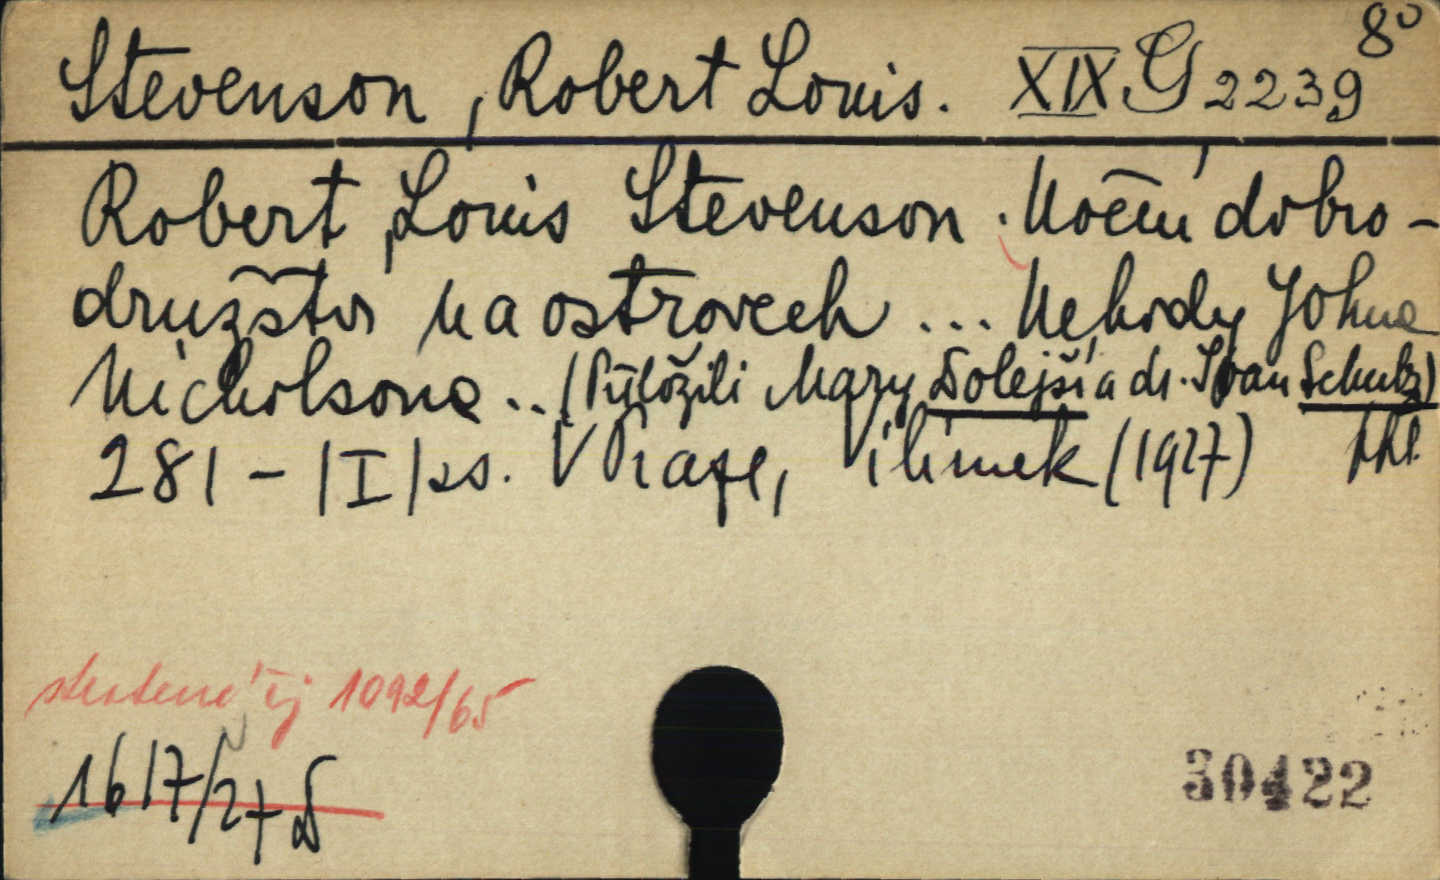 Stevenson, Robert Louis. XIX G 2239 8°
Robert Louis Stevenson. Noční dobro-
družství na ostrovech ... Nehody Johna
Nicholsona .. (Přeložili Mary Dolejší a dr. Ivan Schulz)
281 - |I| ss. V Praze, Vilímek (1927)
ztracené čj 1092/65
1617/27 D
30422